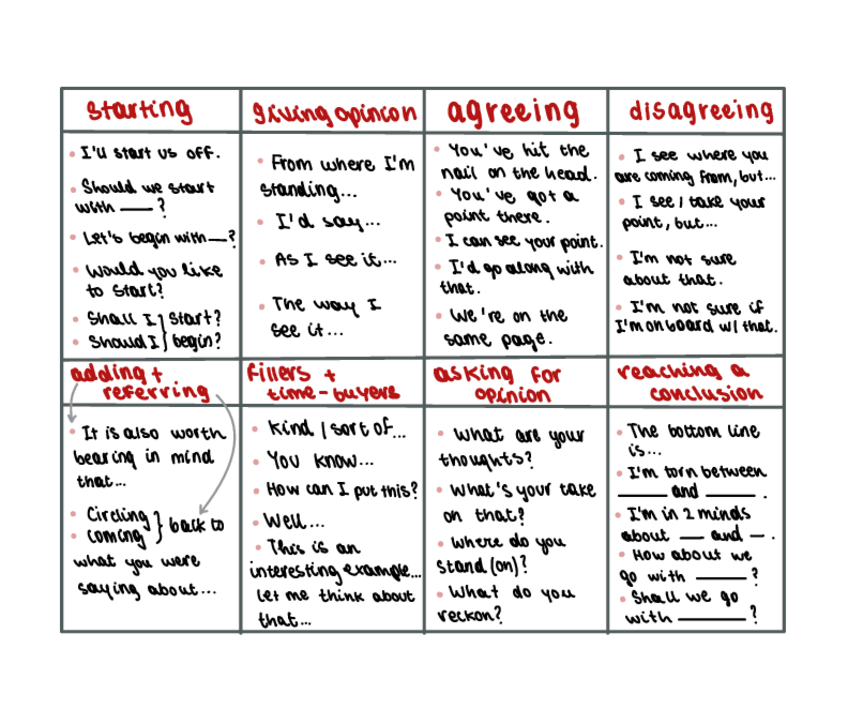 starting
I'll start us off.
Should we start
with ___ ?
Let's begin with ___ ?
Would you like
to start?
Shall I } start?
Should I } begin?
giving opinion
From where I'm
standing...
I'd say...
As I see it...
The way I
see it...
agreeing
You've hit the
nail on the head.
You've got a
point there.
I can see your point.
I'd go along with
that.
We're on the
same page.
disagreeing
I see where you
are coming from, but...
I see / take your
point, but...
I'm not sure
about that.
I'm not sure if
I'm on board w/ that.
adding +
referring
It is also worth
bearing in mind
that...
Circling } back to
coming
what you were
saying about...
fillers +
time-buyers
Kind / sort of...
You know...
How can I put this?
Well...
This is an
interesting example...
let me think about
that...
asking for
opinion
What are your
thoughts?
What's your take
on that?
Where do you
stand (on)?
What do you
reckon?
reaching a
conclusion
The bottom line
is...
I'm torn between
___ and ___ .
I'm in 2 minds
about ___ and ___ .
How about we
go with ___ ?
Shall we go
with ___ ?